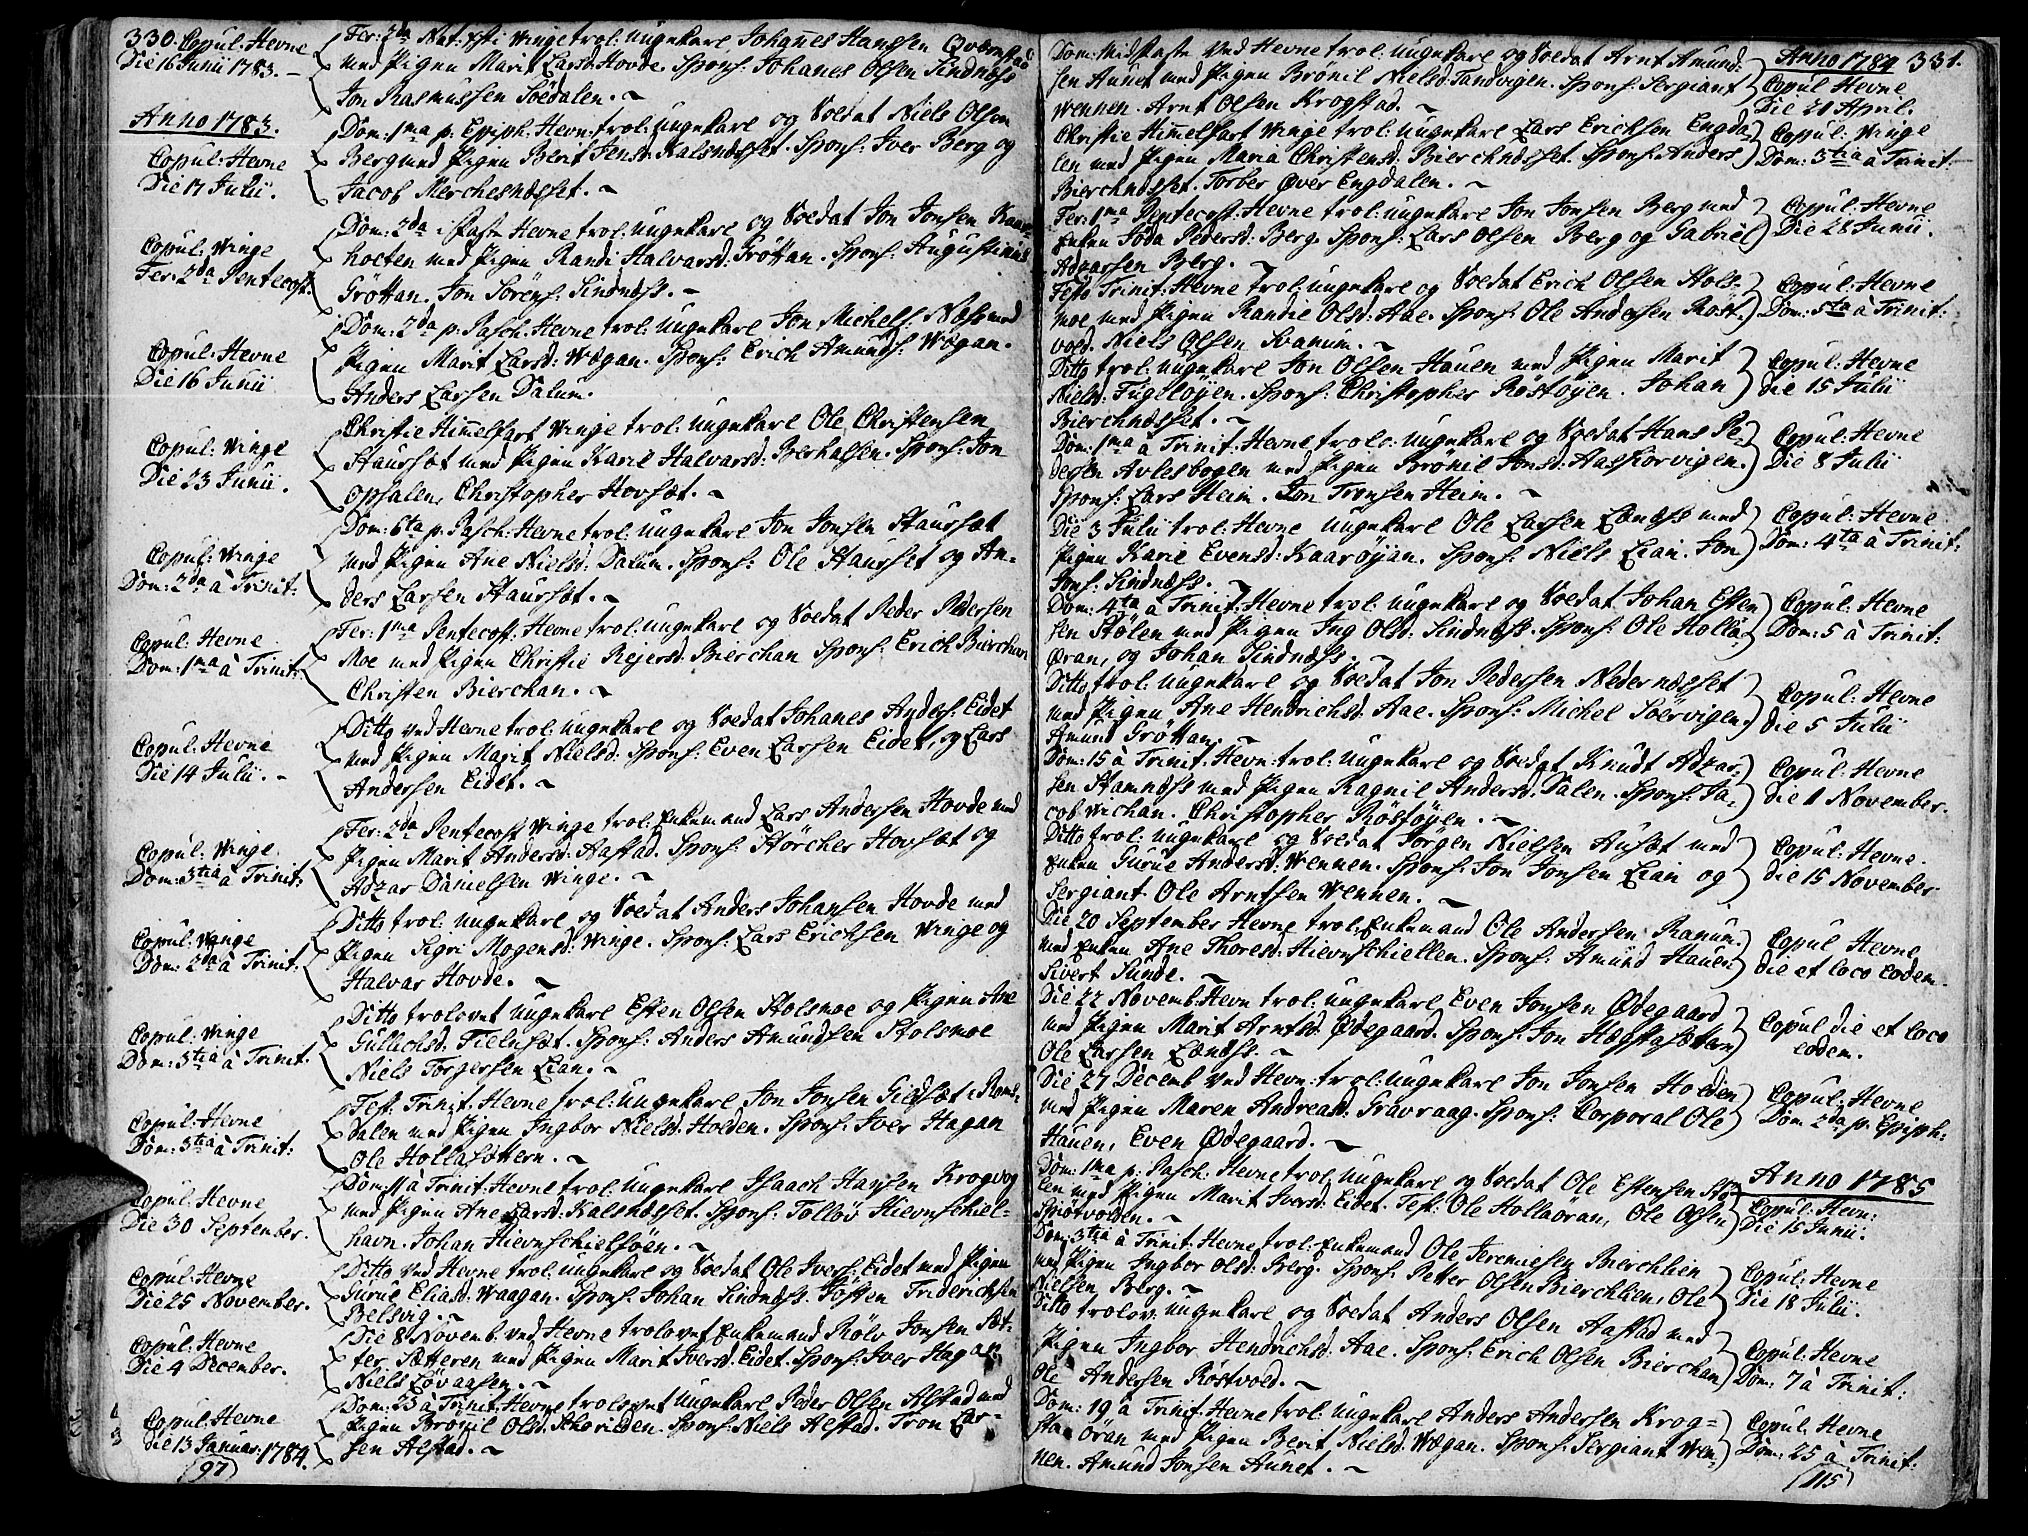 330. Copul: Hevne
Die 16 Junii 1783. –
Fer: 2da Nat: Xsti Winge trol: Ungekarl Johanes Hansen Qvernstad
med Pigen Marit Larsd: Hovde. Spons: Johanes Olsen Sindnæss
Jon Rasmussen Söedalen. ~
Anno 1783.
Copul: Hevne
Die 17 Julii.
Dom: 1ma p: Epiph: Hevne trol: Ungekarl og Soldat Niels Olsen
Berg med Pigen Berit Jensd: Kalsnæsset. Spons: Iver Berg og
Jacob Merchesnæsset. ~
Copul: Winge
Fer: 2da Pentecost:
Dom: 2da i Faste Hevne trol: Ungekarl og Soldat Jon Jonsen
holten med Pigen Randi Halvarsd: Gröttan. Spons: Augustinus
Gröttan. Jon Sörens: Sindnæss. ~
Copul: Hevne
Die 16 Junii
Dom: 2da p: Pasch: Hevne trol: Ungekarl Jon Michels: Næss med
Pigen Marit Larsd: Wægan. Spons: Erich Amunds: Wægan.
Anders Larsen Dalum.
Copul: Winge
Die 23 Junii.
Christie Himelfart Winge trol: Ungekarl Ole Christensen
Staursæt med Pigen Karie Halvarsd: Berhalsen. Spons: Jon
Opsalen, Christopher Hovsæt. ~
Copul: Winge
Dom: 2da à Trinit:
Dom: 6ta p: Pasch: Hevne trol: Ungekarl Jon Jonsen Staursæt
med Pigen Ane Nielsd: Dalum. Spons: Ole Staurset og An-
ders Larsen Staursæt. ~
Copul: Hevne
Dom: 1ma à Trinit:
Fer: 1ma Pentecost: Hevne trol: Ungekarl og Soldat Peder Pedersen
Moe med Pigen Christie Rejersd: Bierchan Spons: Erich Bierchan
Christen Bierchan. ~
Copul: Hevne
Die 14 Julii. –
Ditto ved Hevne trol: Ungekarl og Soldat Johanes Anders: Eidet
med Pigen Marit Nielsd: Spons: Even Larsen Eidet, og Lars
Andersen Eidet. ~
Copul: Winge
Dom: 3tia à Trinit:
Fer: 2da Pentecost Winge trol: Enkemand Lars Andersen Hovde med
Pigen Marit Andersd: Aastad. Spons: Störcher Hovsæt og
Adzar Danielsen Winge. ~
Copul: Winge
Dom: 2da à Trinit:
Ditto trol: Ungekarl og Soldat Anders Johansen Hovde med
Pigen Sigri Mogensd: Winge. Spons: Lars Erichsen Winge og
Halvar Hovde. ~
Copul: Winge
Dom: 3tia à Trinit:
Ditto trolovet Ungekarl Esten Olsen Stolsmoe og Pigen Ane
Gullichsd: Fillusæt. Spons: Anders Amundsen Stolsmoe
Niels Torgersen Lian. ~
Copul: Hevne
Dom: 3tia à Trinit:
Fest: Trinit: Hevne trol: Ungekarl Jon Jonsen Gidsæt i Roms-
dalen med Pigen Ingbor Nielsd: Holden. Spons: Iver Hagan
Ole Hollasöttern. ~
Copul: Hevne
Die 30 September.
Dom: 11 à Trinit: Hevne trol: Ungekarl Isaach Hansen Krogvog
med Pigen Ane Larsd: Kalsnæsset. Spons: Tollöv Hievnschiel-
havn. Johan Hievnschielsöen. ~
Copul: Hevne
Die 25 November.
Ditto ved Hevne trol: Ungekarl og Soldat Ole Ivers: Eidet med Pigen
Gurue Eliasd: Waagan. Spons: Johan Sindnæss. Jösten Friderichsen
Belsvig. ~
Copul: Hevne
Die 4 December.
Die 8 Novemb. ved Hevne trolovet Enkemand Rölv Jonsen Sæt-
ter. Sætteren med Pigen Marit Iversd: Eidet. Spons: Iver Hagan
Niels Lövaasen. ~
Copul: Hevne
die 13 Januar: 1784.
Dom: 23 à Trinit: Hevne trolovet Ungekarl Peder Olsen Alstad med
Pigen Brönil Olsd: Schorilden. Spons: Niels Alstad. Tron Lar-
sen Alstad. ~
(97)
Anno 1784 331.
Dom: Midfaste ved Hevne trol: Ungekarl og Soldat Arnt Amund-
sen Aunet med Pigen Brönil Nielsd: Sandvigen. Spons: Sergiant
Wennen. Arnt Olsen Krogstad. ~
Copul Hevne
Die 20 April.
Christie Himelfart Winge trol: Ungekarl Lars Ericksen Engda-
len med Pigen Maria Christensd: Bierchnæsset. Spons: Anders
Bierchnæsset. Torber Över Engdalen. ~
Copul: Winge
Dom: 3tia à Trinit:
Fer: 1ma Pentecost: Hevne trol: Ungekarl Jon Jonsen Berg med
Enken Joda Pedersd: Berg. Spons: Lars Olsen Berg og Gabriel
Adzarsen Berg. ~
Copul: Hevne
Die 28 Junii.
Festo Trinit: Hevne trol: Ungekarl og Soldat Erich Olsen Hols-
moe med Pigen Randie Olsd: Aae. Spons: Ole Andersen Röst-
vold. Niels Olsen Svanum. ~
Copul: Hevne
Dom: 5ta à Trinit:
Ditto trol: Ungekarl Jon Olsen Hauen med Pigen Marit
Nielsd: Fugelöyen. Spons: Christopher Röstöyen. Johan
Bierchnæsset. ~
Copul: Hevne
die 15 Julii
Dom: 1ma à Trinit: Hevne trol: Ungekarl og Soldat Hans Pe-
dersen Avlesbogen med Pigen Brönil Jonsd: Aaeskorvigen.
Spons: Lars Heim. Jon Tronsen Heim. ~
Copul: Hevne
Die 8 Julii
Die 3 Julii trol: Hevne Ungekarl Ole Larsen Lænæss med
Pigen Karie Evensd: Kaaröyan. Spons: Niels Lian. Jon
Jons: Sindnæss. ~
Copul: Hevne
Dom: 4ta à Trinit:
Dom: 4ta à Trinit: Hevne trol: Ungekarl og Soldat Johan Esten
sen Stölen med Pigen Ing Olsd: Sindnæss. Spons: Ole Holla-
Öran, og Johan Sindnæss. ~
Copul: Hevne
Dom: 5 à Trinit:
Ditto trol: Ungekarl og Soldat Jon Pedersen Nedernæsset
med Pigen Ane Hendrichsd: Aae. Spons: Michel Söervigen.
Amund Gröttan. ~
Copul: Hevne
die 5 Julii
Dom: 15 à Trinit: Hevn: trol: Ungekarl og Soldat Knudt Adzar-
sen Stamnæss med Pigen Ragnil Andersd: Dalen. Spons: Ja-
cob Wichan. Christopher Röstöyen. ~
Copul: Hevne
die 1 November.
Ditto trol: Ungekarl og Soldat Jörgen Nielsen Ausæt med
Enken Gurue Andersd: Wennen. Spons: Jon Jonsen Lian og
Sergiant Ole Arntsen Wennen. ~
Copul: Hevne.
die 15 November
Die 20 September Hevne trol: Enkemand Ole Andersen Ranum
med Enken Ane Thoresd: Hievnschiellen. Spons: Amund Hauen
Sivert Sunde. ~
Copul Hevne
die et loco eodem.
Die 22 Novemb: Hevn trol: Ungekarl Even Jonsen Ödegaard
med Pigen Marit Arntsd: Ödegaard. Spons: Jon Hægstasættern
Ole Larsen Lænæss. ~
Copul die et loco
eodem.
Die 27 Decemb ved Hevn: trol: Ungekarl Jon Jonsen Holden
med Pigen Maren Andreasd: Gravraag. Spons: Corporal Ole
Hauen, Even Ödegaard. ~
Copul: Hevne
Dom: 2da p: Epiph:
Anno 1785
Dom: 1ma p: Pasch: Hevne trol: Ungekarl og Soldat Ole Estensen Stö-
len med Pigen Marit Iversd: Eidet. Test: Ole Hollaöran, Ole Olsen
Sprötvolden. ~
Copul: Hevn:
Die 15 Junii.
Dom: 3tia à Trinit: Hevne trol: Enkemand Ole Jeremiesen Bierchlien
med Pigen Ingbor Olsd: Berg. Spons: Petter Olsen Bierchlien, Ole
Nielsen Berg. ~
Copul: Hevne
Die 18 Julii.
Ditto trolov: Ungekarl og Soldat Anders Olsen Aastad med
Pigen Ingbor Hendrichsd: Aae. Spons: Erich Olsen Bierchan
Ole Andersen Röstvold. ~
Copul: Hevne
Dom: 7 à Trinit:
Dom: 19 à Trinit: Hevne trol: Ungekarl Anders Andersen Krog=
sta öran med Pigen Berit Nielsd: Wægan. Spons: Sergiant Wen-
nen. Amund Jonsen Aunet. ~
Copul: Hevne
Dom: 25 à Trinit:
(115)